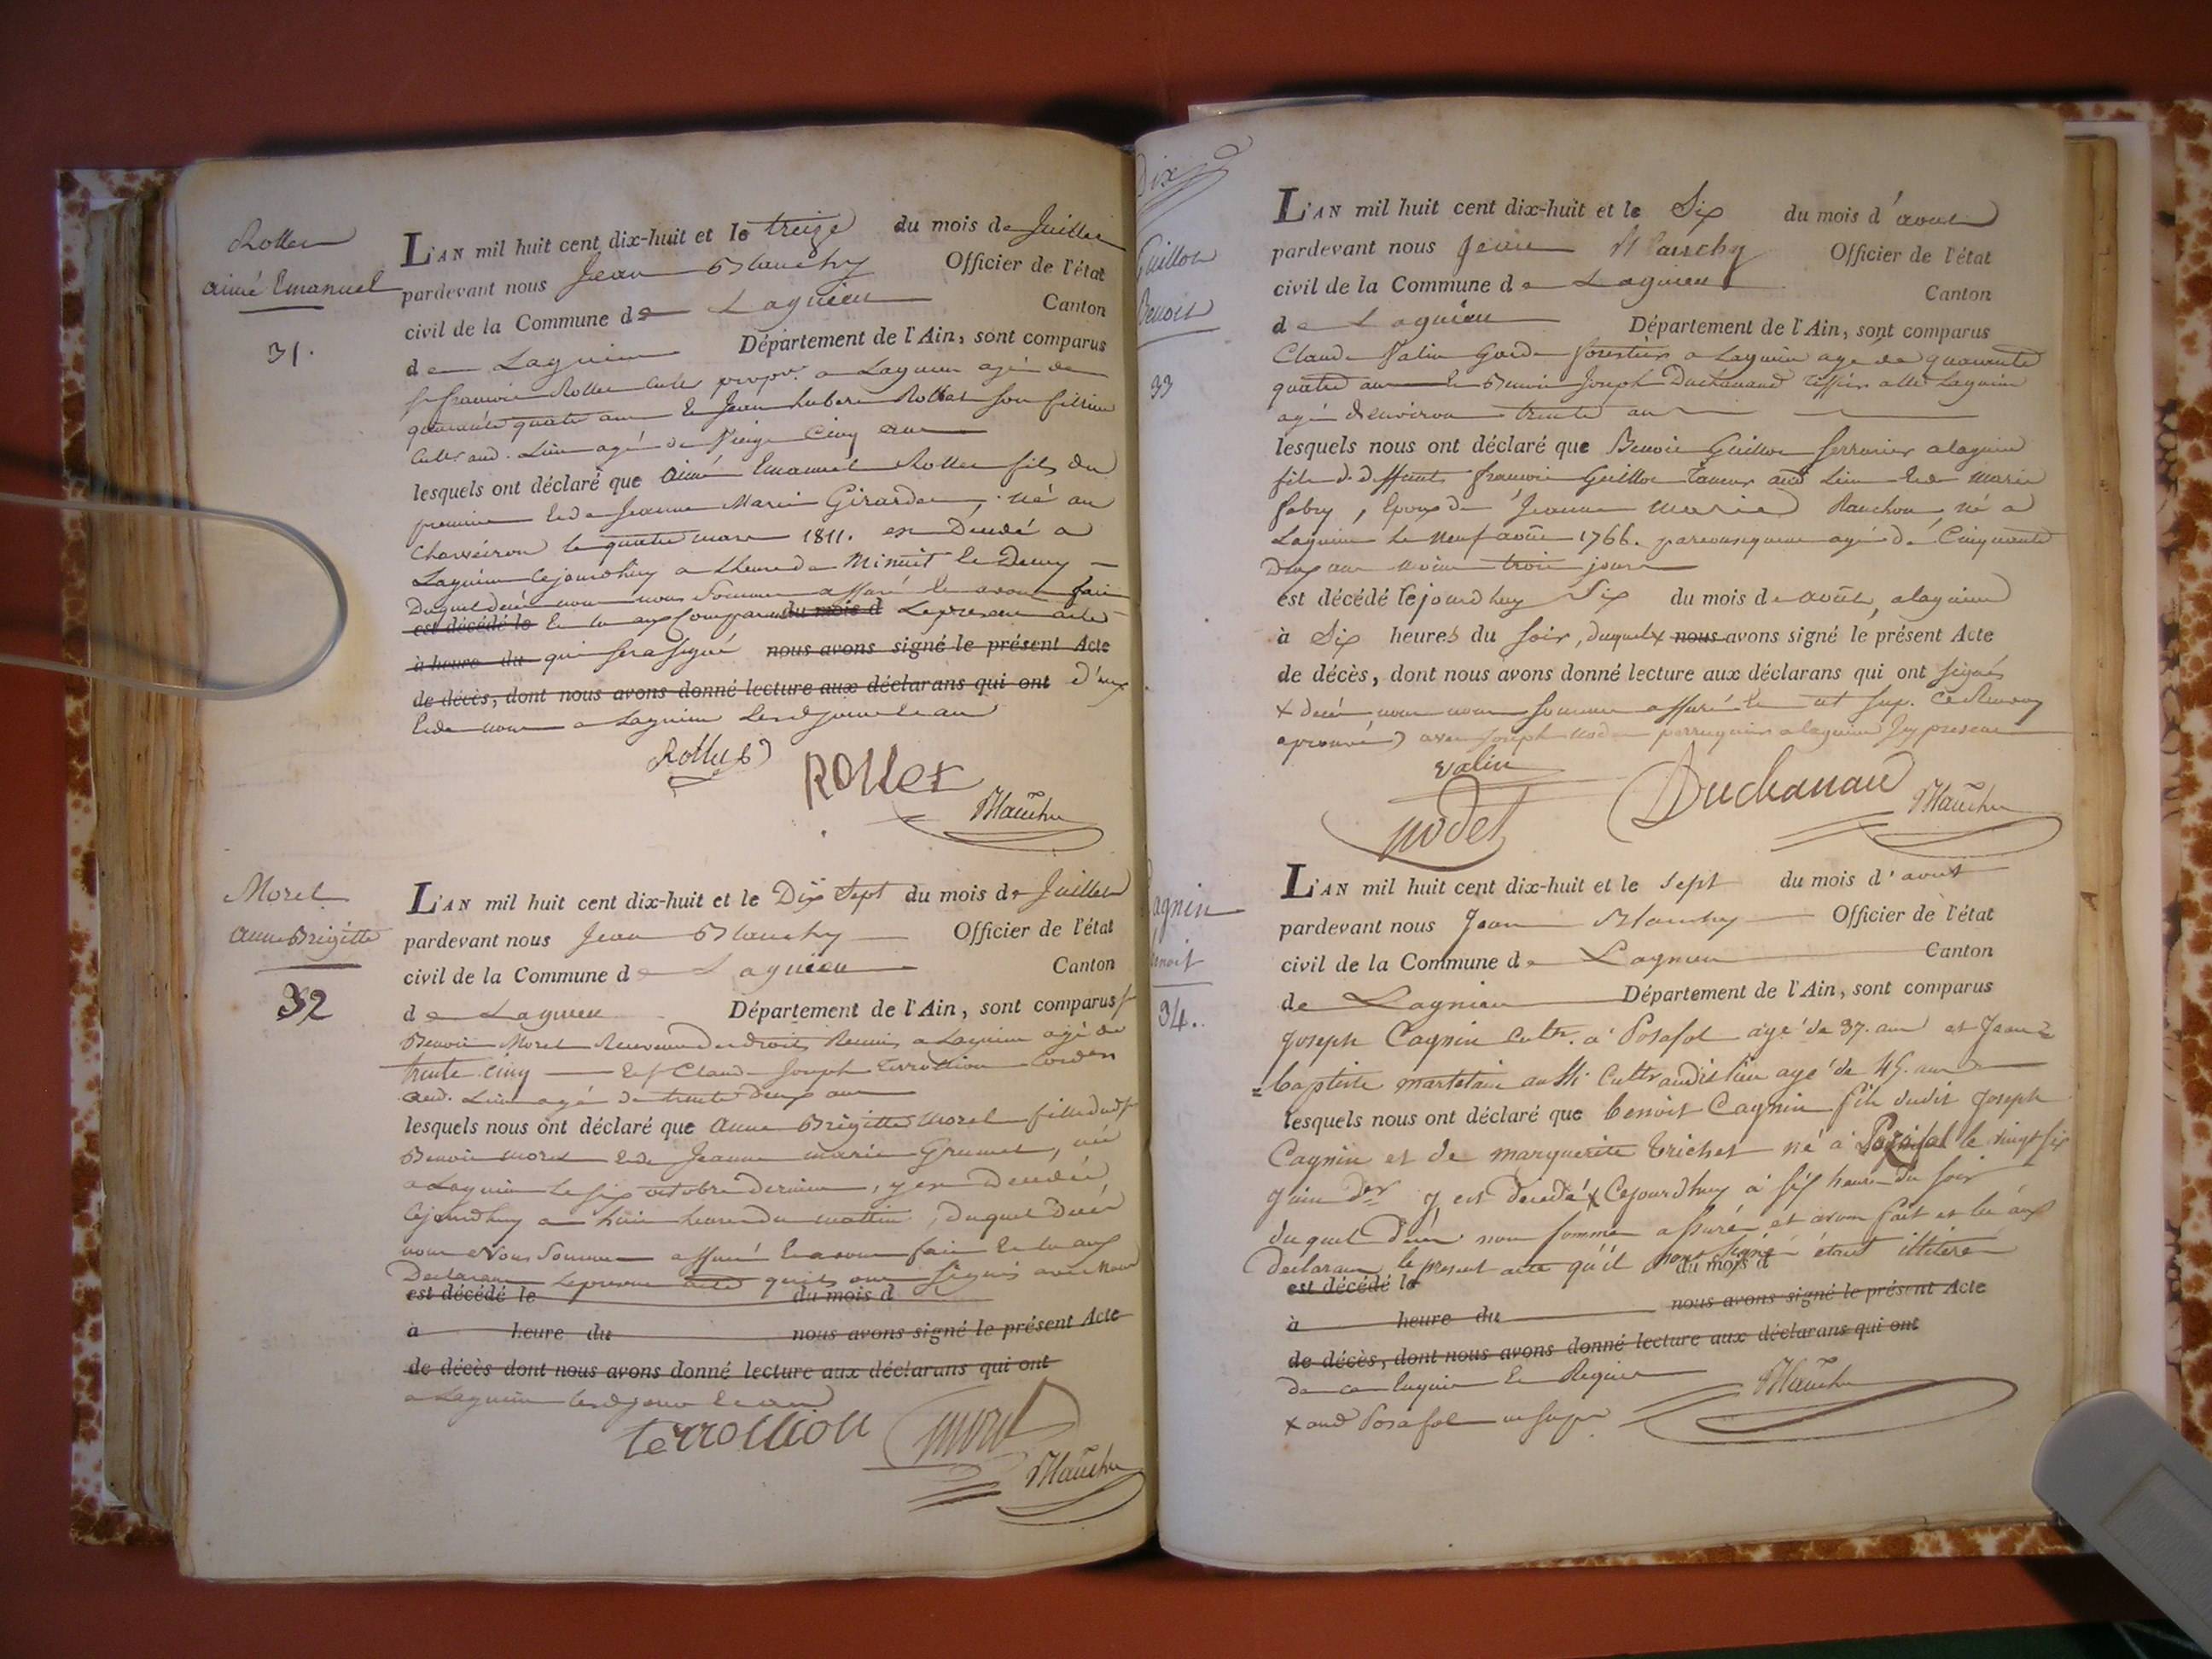 Rollet
aimé Emanuel
31.
L'AN mil huit cent dix-huit et le treize du mois de Juillet
pardevant nous Jean Blanchy Officier de l'état
civil de la Commune de Lagnieu Canton
de Lagnieu Département de l'Ain, sont comparus
françois Rollet cultr propre. a Lagnieu agé de
quarante quatre ans & Jean hubert Rollet son
cultr aud. Lieu agé de Vingt Cinq ans
lesquels ont déclaré que aimé Emanuel Rollet fils du
premier & de Jeanne Marie Girardet, né au
le quatre mars 1811. est Decedé a
Lagnieu Cejourdhuy a Lheure de Minuit & Demy
Duquel decé nous nous Sommes assuré & avons fait
est décédé le & lu aux Comparus du mois d Le present acte
à heure du qui sera signé nous avons signé le présent Acte
de décès, dont nous avons donné lecture aux déclarans qui ont d'eux
& de nous a Lagnieu Lesd jour & an
Rollet
Rollet
Blanchy
Morel
anne Brigitte
32
L'AN mil huit cent dix-huit et le Dix Sept du mois de Juillet
pardevant nous Jean Blanchy Officier de l'état
civil de la Commune de Lagnieu Canton
de Lagnieu Département de l'Ain, sont comparus
Benoit Morel Receveur des droits Reunis a Lagnieu agé de
trente cinq & Claude Joseph Terrollion
aud. Lieu agé de trente deux ans
lesquels nous ont déclaré que anne Brigitte Morel fille dud
Benoit morel & de Jeanne marie Grumet, née
a Lagnieu le six octobre dernier, y est Decedée,
Cejourdhuy a huit heures du mattin, Duquel Decé
nous Nous Sommes assuré & avons fait & lu aux
Declarans Le present acte quils ont signés avec Nous
est décédé le du mois d
à heure du nous avons signé le présent Acte
de décès dont nous avons donné lecture aux déclarans qui ont
a Lagnieu lesd jour & an
terrollion
morel
Blanchy
Dix
Guillot
Benoit
33
L'AN mil huit cent dix-huit et le Six du mois d'aout
pardevant nous Jean Blanchy Officier de l'état
civil de la Commune de Lagnieu Canton
de Lagnieu Département de l'Ain, sont comparus
Claude Valin Garde forestier a Lagnieu agé de quarante
quatre ans & Benoit Joseph Duchanaud Tissier allé Lagnieu
agé d'environ trente ans
lesquels nous ont déclaré que Benoit Guillot serrurier a lagnieu
fils de deffunt françois Guillot Taneur aud Lieu & de Marie
fabry, Epoux de Jeanne Marie Ranchon, né a
Lagnieu le Neuf août 1766. par consequent agé de Cinquante
Deux ans moins trois jours
est décédé cejourdhuy Six du mois de août, a lagnieu
à Six heures du soir, duquel x nous avons signé le présent Acte
de décès, dont nous avons donné lecture aux déclarans qui ont signés
x decé nous nous sommes assuré & ut sup. Ce Renvoy
aprouvé) avec Joseph Nodet perruquier a lagnieu Icy present
valin
nodet
Duchanau
Blanchy
agnin
enoit
34.
L'AN mil huit cent dix-huit et le sept du mois d'aout
pardevant nous Jean Blanchy Officier de l'état
civil de la Commune de Lagnieu Canton
de Lagnieu Département de l'Ain, sont comparus
Joseph Cagnin Cultr. à Posafol agé de 37. ans et Jean
= baptiste martelain aussi Cultr audit lieu agé de 45. ans
lesquels nous ont déclaré que benoit Cagnin fils dudit Joseph
Cagnin et de marguerite trichet né à Posafol le vingt six
juin der y est decedé x Cejourdhuy à six heures du soir
duquel décé nous sommes assuré et avons fait et lu aux
Déclarans le present acte qu'il n'ont signé étant illiteré
est décédé le du mois d
à heure du nous avons signé le présent Acte
de décès, dont nous avons donné lecture aux déclarans qui ont
de ce Enquis & Requis
x aud Posafol ut supr
Blanchy